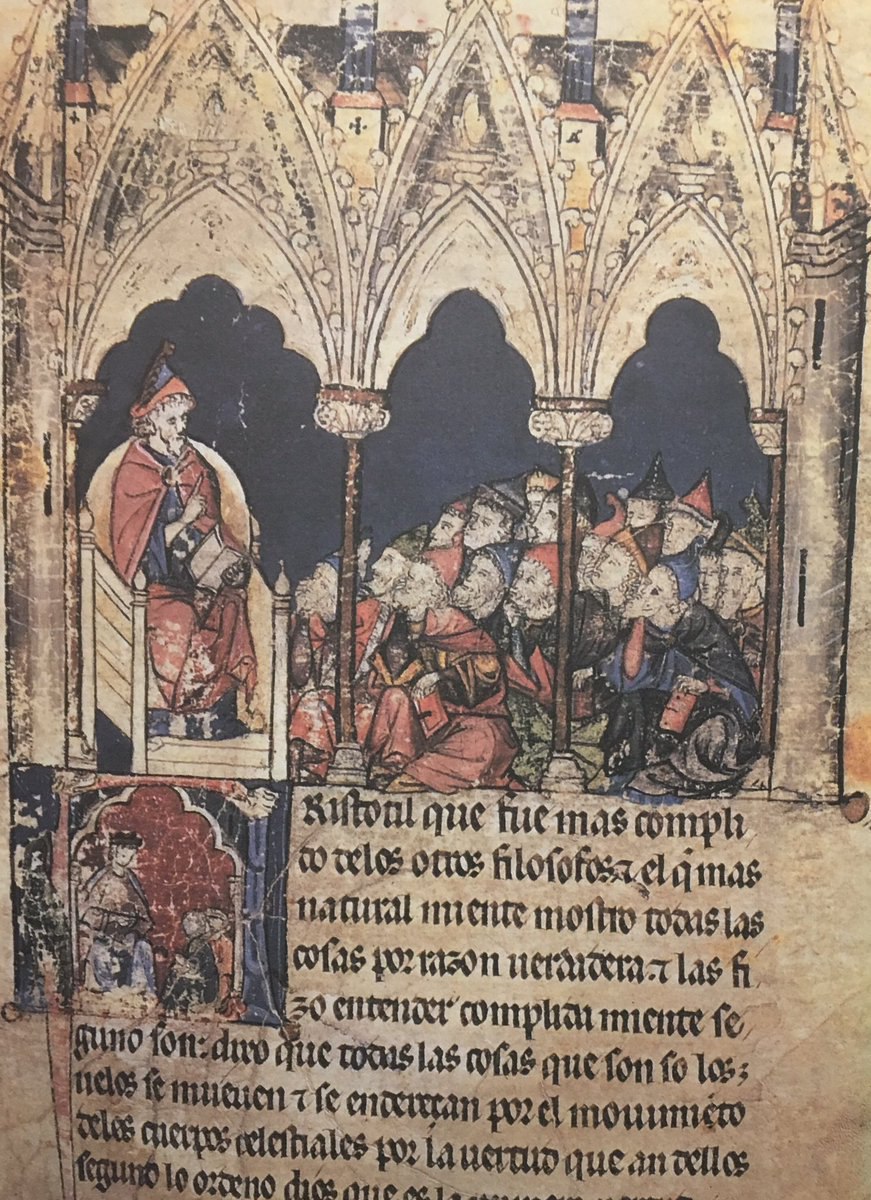 Ristotil que fue mas compli
do delos otros filosofos ⁊ el q̃ mas
natural miente mostro todas las
cosas por razon uerdadera ⁊ las fi
zo entender complida miente se
guno son: dixo que todas las cosas que son so los
uelos se mueuen ⁊ se enderecan por el mouumiẽto
delos cuerpos celestiales por la uertud que an dellos
segund lo ordeno dios que es la